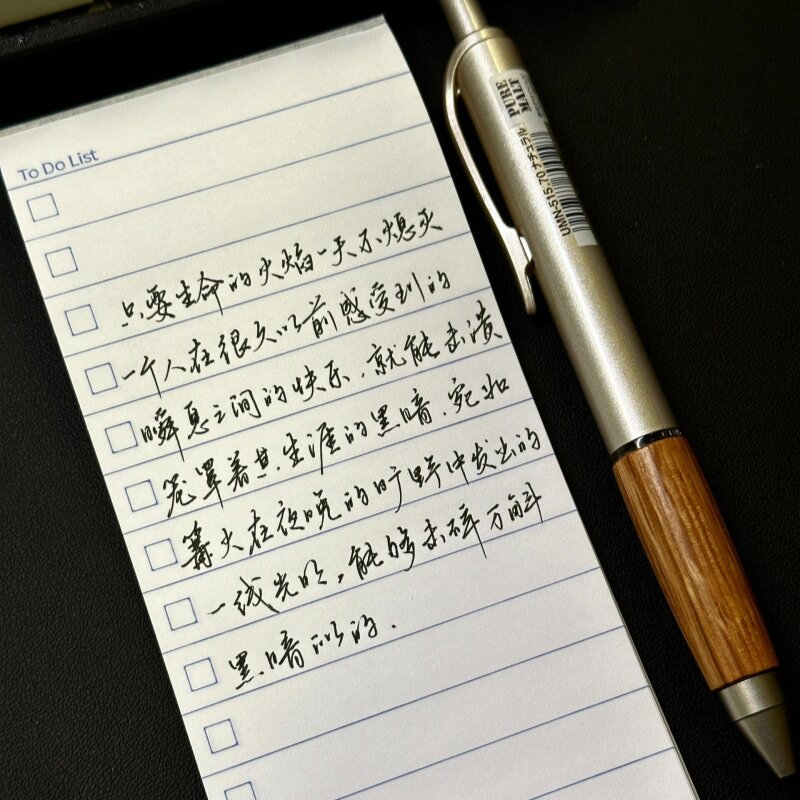 To Do List
只要生命的火焰一天不熄灭
一个人在很久以前感受到的
瞬息之间的快乐，就能击溃
笼罩着其生涯的黑暗，宛如
篝火在夜晚的旷野中发出的
一线光明，能够击碎万斛
黑暗似的．
PURE
MALT
UMN-515.70ナチュラル